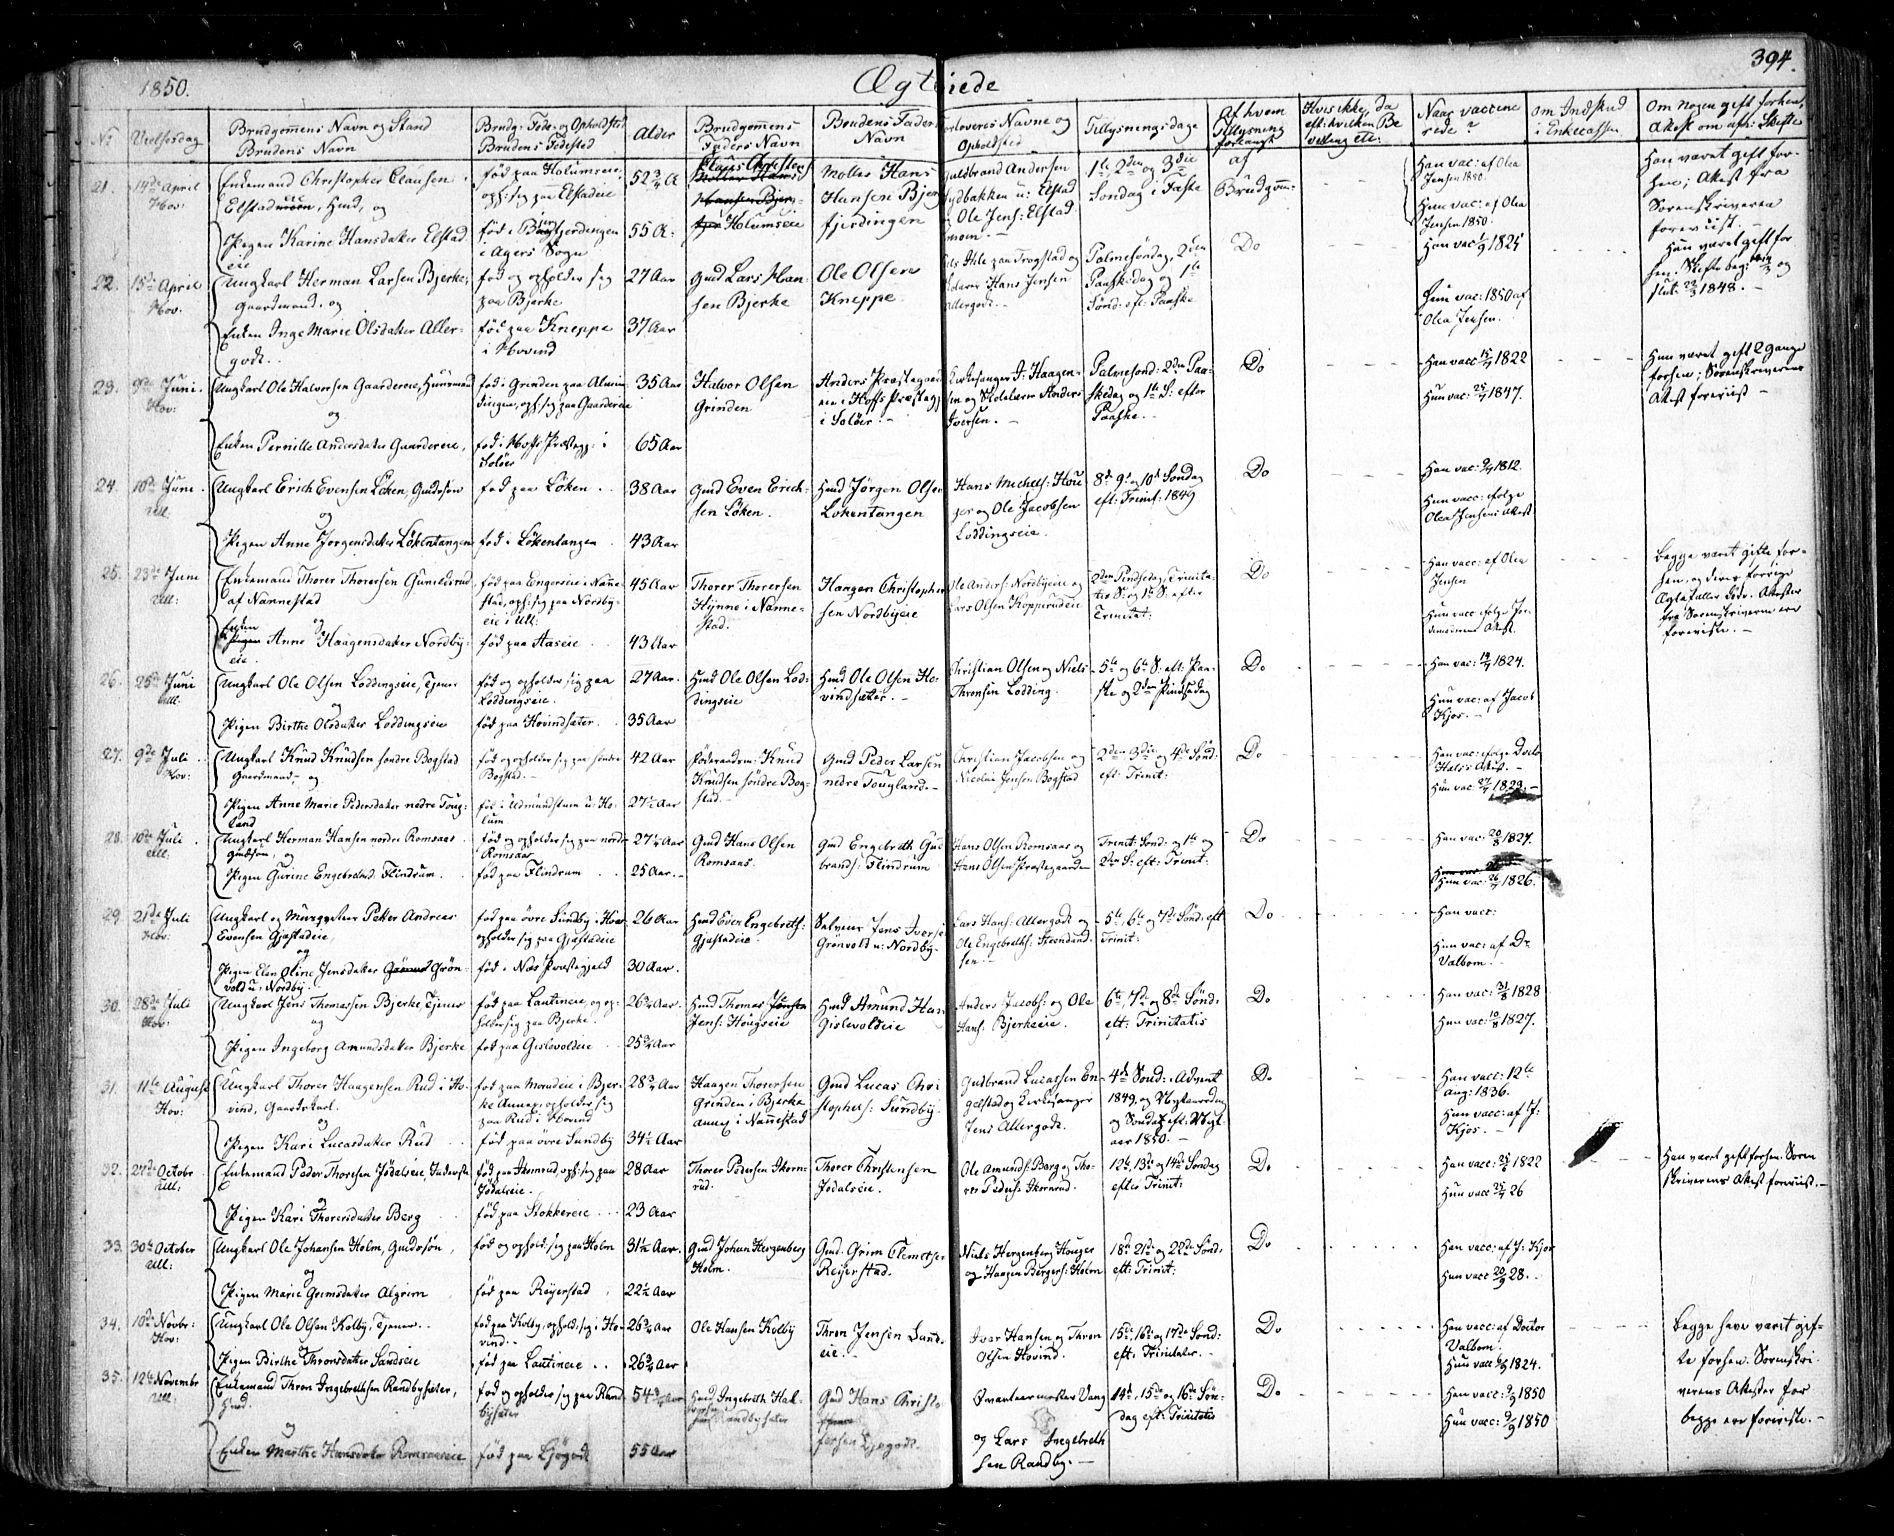 1850.
Ægtviede
394.
No
Vielsesdag
Brudgommens Navn og Stand
Brudens Navn
Brudg: Føde- og Opholdsted
Brudens Fødested
Alder
Brudgommens
Faders Navn
Brudens Faders
Navn
Forloveres Navne og
Opholdsted
Tillysningsdage
Af hvem
Tillysning
forlangt
Hvis ikke, da
eft: hvilken Be
villing etc:
Naar vaccine
rede?
Om Indskud
i Enkecassen
Om nogen gift forhen,
Attest om afh: Skifte
21.
14de April
Hov:
Enkemand Christopher Clausen
Elstadeie, Hmd, og
Pigen Karine Hansdatter Elstad
eie
født paa Holumseie,
oph: sig paa Elstadeie
fød i Bjerfjerdingen
i Agers Sogn
52 3/4 A
55 A:
Claus Christens
Holumseie
Møller Hans
Hansen Bjer
fjerdingen
Guldbrand Andersen
Nydbakken u: Elstad
Ole Jens: Elstad
1ste 2den og 3die
Søndag i Faste
af
Brudgom:
Han vac: af Olea
Jensen 1850.
Hun vac: af Olea
Jensen 1850.
Han været gift for-
hen; Attest fra
Sorenskriveren
foreviist. -
22.
15de April
Hov:
Ungkarl Herman Larsen Bjerke,
Gaardmand, og
Enken Inge Marie Olsdatter Aller-
godt.
fød og opholder sig
paa Bjerke
fød paa Kneppe
i Hovind
27 Aar
37 Aar
Gmd Lars Han-
sen Bjerke
Ole Olsen
Kneppe
Nils Ihle paa Trogstad og
Hans Jensen
Allergodt.
Palmesøndag, 2den
Paaskedag og 1ste
Sønd: eft: Paaske
Do
Han vac 1/9 1825
Hun vac: 1850 af
Olea Jensen.
Hun været gift for
hen. Skifte beg: og
slut: 1848. -
23.
9de Juni.
Hov:
Ungkarl Ole Halvorsen Gaardereie, Huusmand
og
Enken Pernille Andersdatter Gaardereie,
fød i Grinden paa Alm
dingen, oph: sig paa Gaardereie
fød i Hoffs Præstegj: i
Soløer
35 Aar
65 Aar
Halvor Olsen
Grinden
Anders Præstegaard
eie i Hoffs Præstegj
i Soløer. -
Kirkesanger J: Haagen-
sen og Skolelærer Anders
Iversen. -
Palmesønd: 2den Paa-
skedag og 1ste S: efter
Paaske.
Do
Han vacc 15/7 1822
Hun vac: 25/7 1847.
Hun været gift 2 Gange
forhen; Sorenskriverens
Attest foreviist -
24.
10de Juni
Ull.
Ungkarl Erich Evensen Løken, Gmdssøn
og
Pigen Anne Jørgensdatter Løkentangen
fød paa Løken
fød i Løkentangen
38 Aar
43 Aar
Gmd Even Erich-
sen Løken.
Hmd Jørgen Olsen
Løkentangen
Hans Michels: Hou
ger og Ole Jacobsen
Loddingseie.
8de 9de og 10de Søndag
eft: Trinit: 1849
Do
Han vac: 1812.
Hun vacc: ifølge
Olea Jensens Attest
25.
23de Juni
Ull:
Enkemand Thorer Thorersen Gunildsrud
af Nannestad
og
Enken Anne Haagensdatter Nordby-
eie.
fød paa Engerseie i Nanne-
stad, oph: sig paa Nordby-
eie i Ull:
fød paa Aaseie
45 Aar
43 Aar
Thorer Thorersen
Hynne i Nanne-
stad.
Haagen Christopher
sen Nordbyeie
Ole Anders: Nordbyeie og
Lars Olsen Kopperudeie
2den Pindsedag, Trinita-
tis S: og 1ste S: efter
Trinitat:
Do
Han vacc: af Olea
Jensen
Hun vacc: ifølge
Attest.
Begge været gifte for-
hen, og deres forrige
Ægtefæller døde. Attester
fra Sorenskriveren ere
foreviste. -
26.
25de Juni
Ull.
Ungkarl Ole Olsen Loddingseie, Tjener
og
Pigen Birthe Olsdatter Loddingseie
fød og opholder sig paa
Loddingseie.
fød paa Hovindsæter
27 Aar.
35 Aar
Hmd Ole Olsen Lod-
dingseie
Hmd Ole Olsen Ho-
vindsæter. -
Christian Olsen og Niels
Thronsen Lodding.
5te og 6te S: eft: Paa-
ske og 2den Pindsedag
Do
Han vac: 19/9 1824.
Hun vac: af Jacob
Kjos. -
27.
9de Juli
Hov:
Ungkarl Knud Knudsen søndre Bogstad
Gaardmand, og
Pigen Anne Marie Pedersdatter nedre Toug-
land
fød og opholder sig paa søndre
Bogstad. -
fød i Udmundstuen u: Ho-
lum
42 Aar
27 1/2 Aar
Føderaadsm: Knud
Knudsen søndre Bog-
stad. -
Gmd Peder Larsen
nedre Tougland. -
Christian Jacobsen og
Nicolai Jensen Bogstad
2den 3die og 4de Sønd:
eft: Trinit:
Do
Han vac: ifølge Doctor
Attest. -
Hun vac: 27/7 1829. -
28.
10de Juli
Ull:
Ungkarl Herman Hansen nordre Romsaas
Gmdssøn, og
Pigen Gurine Engebretsd: Flindrum
fød og opholder sig paa nordre
Romsaas
fød paa Flindrum
27 1/2 Aar
25 Aar. -
Gmd Hans Olsen
Romsaas.
Gmd Engebreth Gud
brands: Flindrum
Hans Olsen Romsaas og
Hans Olsen Præstegaarden
Trinit: Sønd: og 1ste og
2den S: eft: Trinit:
Do
Han vac: 20/8 1827.
Hun vac: 26/7 1826.
29.
21de Juli
Hov:
Ungkarl og Muurmester Peter Andreas
Evensen Gjestadeie,
og
Pigen Elen Oline Jensdatter Grøn-
vold u. Nordby.
fød paa øvre Sundby i Hov:
opholder sig paa Gjestadeie
fød i Næs Præstegjeld
26 Aar
30 Aar.
Hmd Even Engebreths:
Gjestadeie.
Selveier Jens Ivers
Grønvold u: Nordby.
Lars Hans: Allergodt og
Ole Engebreths:
sen. -
5te, 6te og 7de Sønd: eft
Trinit:
Do
Han vacc:
Hun vac: af Dr
Valbom.
30.
28de Juli
Hov:
Ungkarl Jens Thomassen Bjerke, Tjener
og
Pigen Ingeborg Amundsdatter Bjerke
fød paa Lautineie, og op-
holder sig paa Bjerke.
fød paa Gislevoldeie
26 3/4 Aar.
25 3/4 Aar
Hmd Thomas
Jens: Hougseie
Hmd Amund Han
Gislevoldeie
Anders Jacobs: og Ole
Hans: Bjerkeeie.
6te, 7de og 8de Sønd:
eft: Trinitatis
Do
Han vac: 31/8 1828
Hun vac: 10/8 1827.
31.
11te August
Hov:
Ungkarl Thorer Haagensen Rud i Ho-
vind, Gaardskarl.
og
Pigen Kari Lucasdatter Rud
fød paa Moradeie i Bjer-
ke Annex, opholder sig
paa Rud i Hovind
fød paa øvre Sundby
28 3/4 Aar
34 1/2 Aar
Haagen Thorersen
Grinden i Bjerke
Annex i Nannestad
Gmd Lucas Chri
stophers: Sundby.
Gudbrand Lucassen En-
gelstad og Kirkesanger
Jens Allergodt.
4de Sønd: i Advent
1849, og Nytaarsdag
og Søndag eft: Nyt-
aar 1850. -
Do
Han vacc: 12te
Aug: 1836.
Hun vacc: af J:
Kjos. -
32.
27de Octobr
Ull:
Enkemand Peder Thoresen Jødalseie, Inderste
og
Pigen Kari Thoresdatter Berg
fød paa Ikornrud, oph: sig paa
Jødalseie.
fød paa Stokkereie
28 Aar
23 Aar
Thorer Pedersen Ikorn-
rud.
Thorer Christensen
Jødalseie.
Ole Amunds: Berg og Tho-
res Peders: Ikornrud.
12te, 13de og 14de Søndag
efter Trinit:
Do
Han vacc: 25/7 1822
Hun vacc 25/7 26
Han været gift forhen. Soren
skriverens Attest foreviist. -
33.
30te October
Ull:
Ungkarl Ole Johansen Holm, Gmdssøn,
og
Pigen Marie Grimsdatter Algrim
fød og ophold: sig paa Holm
fød paa Reyerstad
31 1/2 Aar.
22 1/2 Aar
Gmd Johan Hergenberg
Holm.
Gmd. Grim Clemetsen
Reyerstad.
Niels Hergenberg Houger
og Haagen Bergers: Holm
18de 21de og 22de Sønd:
eft: Trinit:
Do
Han vacc: af J: Kjos
Hun vacc 20/9 28.
34.
10de Novbr:
Hov:
Ungkarl Ole Olsen Kolby, Tjener.
og
Pigen Birthe Thronsdatter Sandseie
fød paa Kolby, ophold: sig i Ho-
vind. -
fød paa Lautineie
26 3/4 Aar
26 3/4 Aar
Ole Hansen Kolby
Thron Jensen Sand-
eie. -
Ivar Hansen og Thron
Olsen Hovind.
15de, 16de og 17de Sønd:
eft: Trinitatis. -
Do
Han vacc: af Doctor
Valbom.
Hun vacc 1824.
Begge have været gif-
te forhen. Sorenskri-
verens Attester for
begge ere foreviste. -
35.
12te Novembr
Ull:
Enkemand Thron Ingebrethsen Randbysæter,
Hmd.
og
Enken Marthe Hansdatter Romsaaseie
fød og opholder sig paa Rand
bysæter
fød paa Ljøgodt
54 3/4 Aar
55 Aar
Hmd Ingebreth Hal-
Randbysæter
Gmd Hans Christo
fersen Ljøgodt.
Qvarteermester Vang
og Lars Ingebreth
sen Randby. -
14de, 15de og 16de Søn-
dag eft: Trinitatis
Do
Han vacc: 9/9 1850
Hun vacc: 9/9 1850